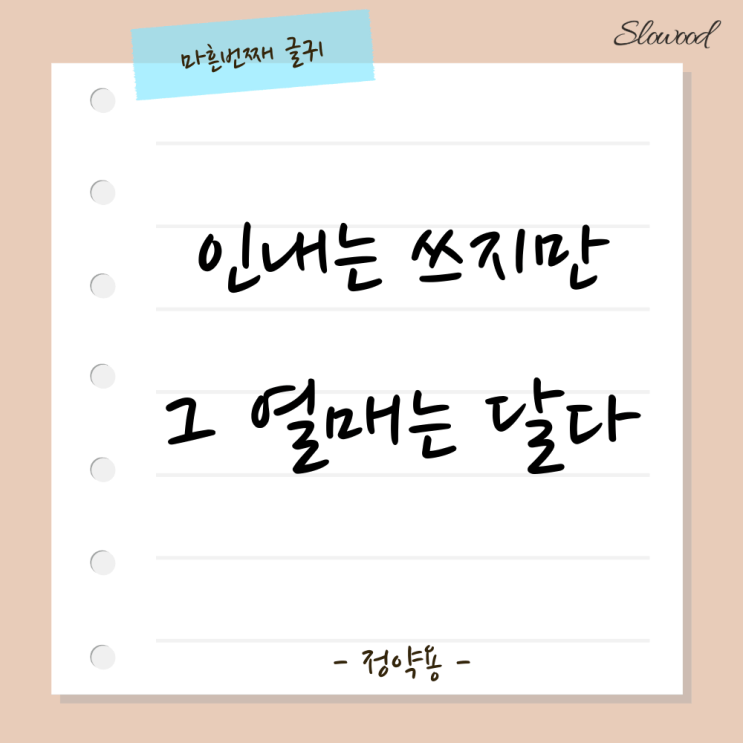 Slowood
마흔번째 글귀
인내는 쓰지만
그 열매는 달다
- 정약용 -